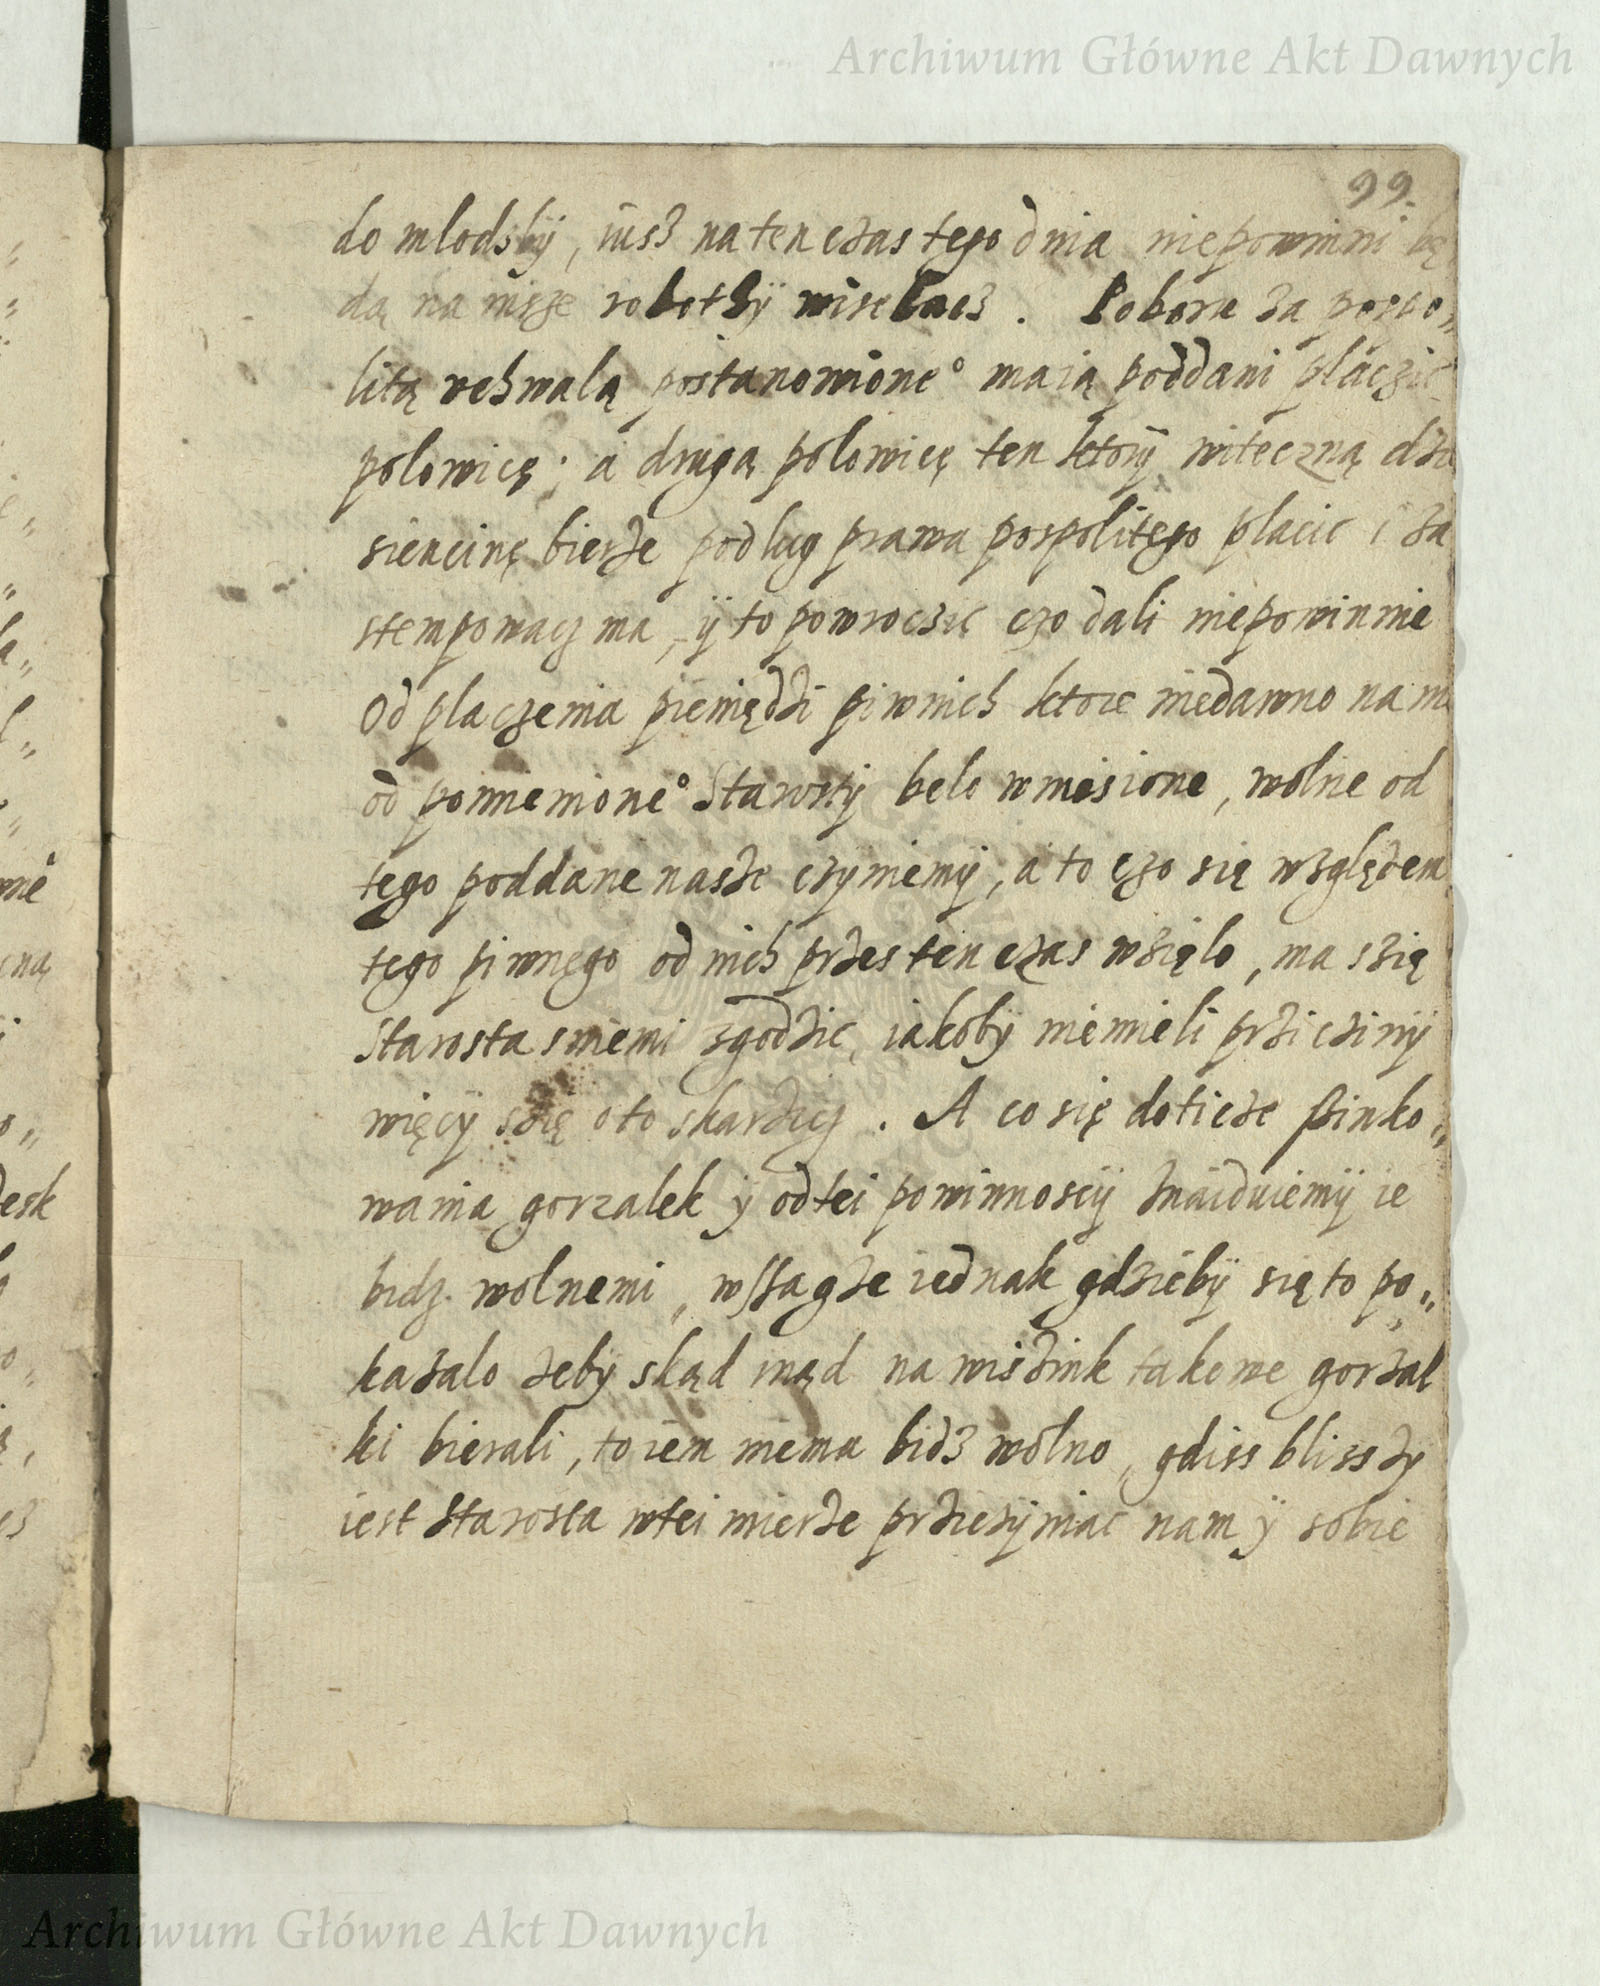 Archiwum Główne Akt Dawnych
99.
do mlodsbÿ, iusz na ten czas tego dnia niepowinni bę
dą na insze robothÿ wisełacz. Pobore za pospo„
litą vchwalą postanowione° maią poddani placzic
polowicę; a drugą polowicę ten ktorÿ witeczną dzie
siencinę bierze podlug prawa pospolitego placic i za
stempowacz ma, ÿ to powroczic czo dali niepowinnie
Od placzenia pieniędzi piwnich ktore niedawno na ni
od pomienione° Starosty belo wniesione, wolne od
tego poddane nasze czyniemÿ, a to czo się względem
tego piwnego od nich przes ten czas wzięlo, ma szię
Starosta sniemi zgodzic, iakobÿ niemieli prziczinÿ
więcÿ szię oto skarzicz. A co się doticze szinko„
wania gorzalek ÿ od tei powinnoscÿ znaiduiemÿ ie
bidz wolnemi, wssagze iednak gdziebÿ się to po„
kazalo zebÿ skąd inąd na wiszink takowe gorzal
ki bierali, to iem niema bidz wolno, gdiss blisszy
iest Starosta wtei mierze prziczÿniac nam ÿ sobie
Archiwum Główne Akt Dawnych